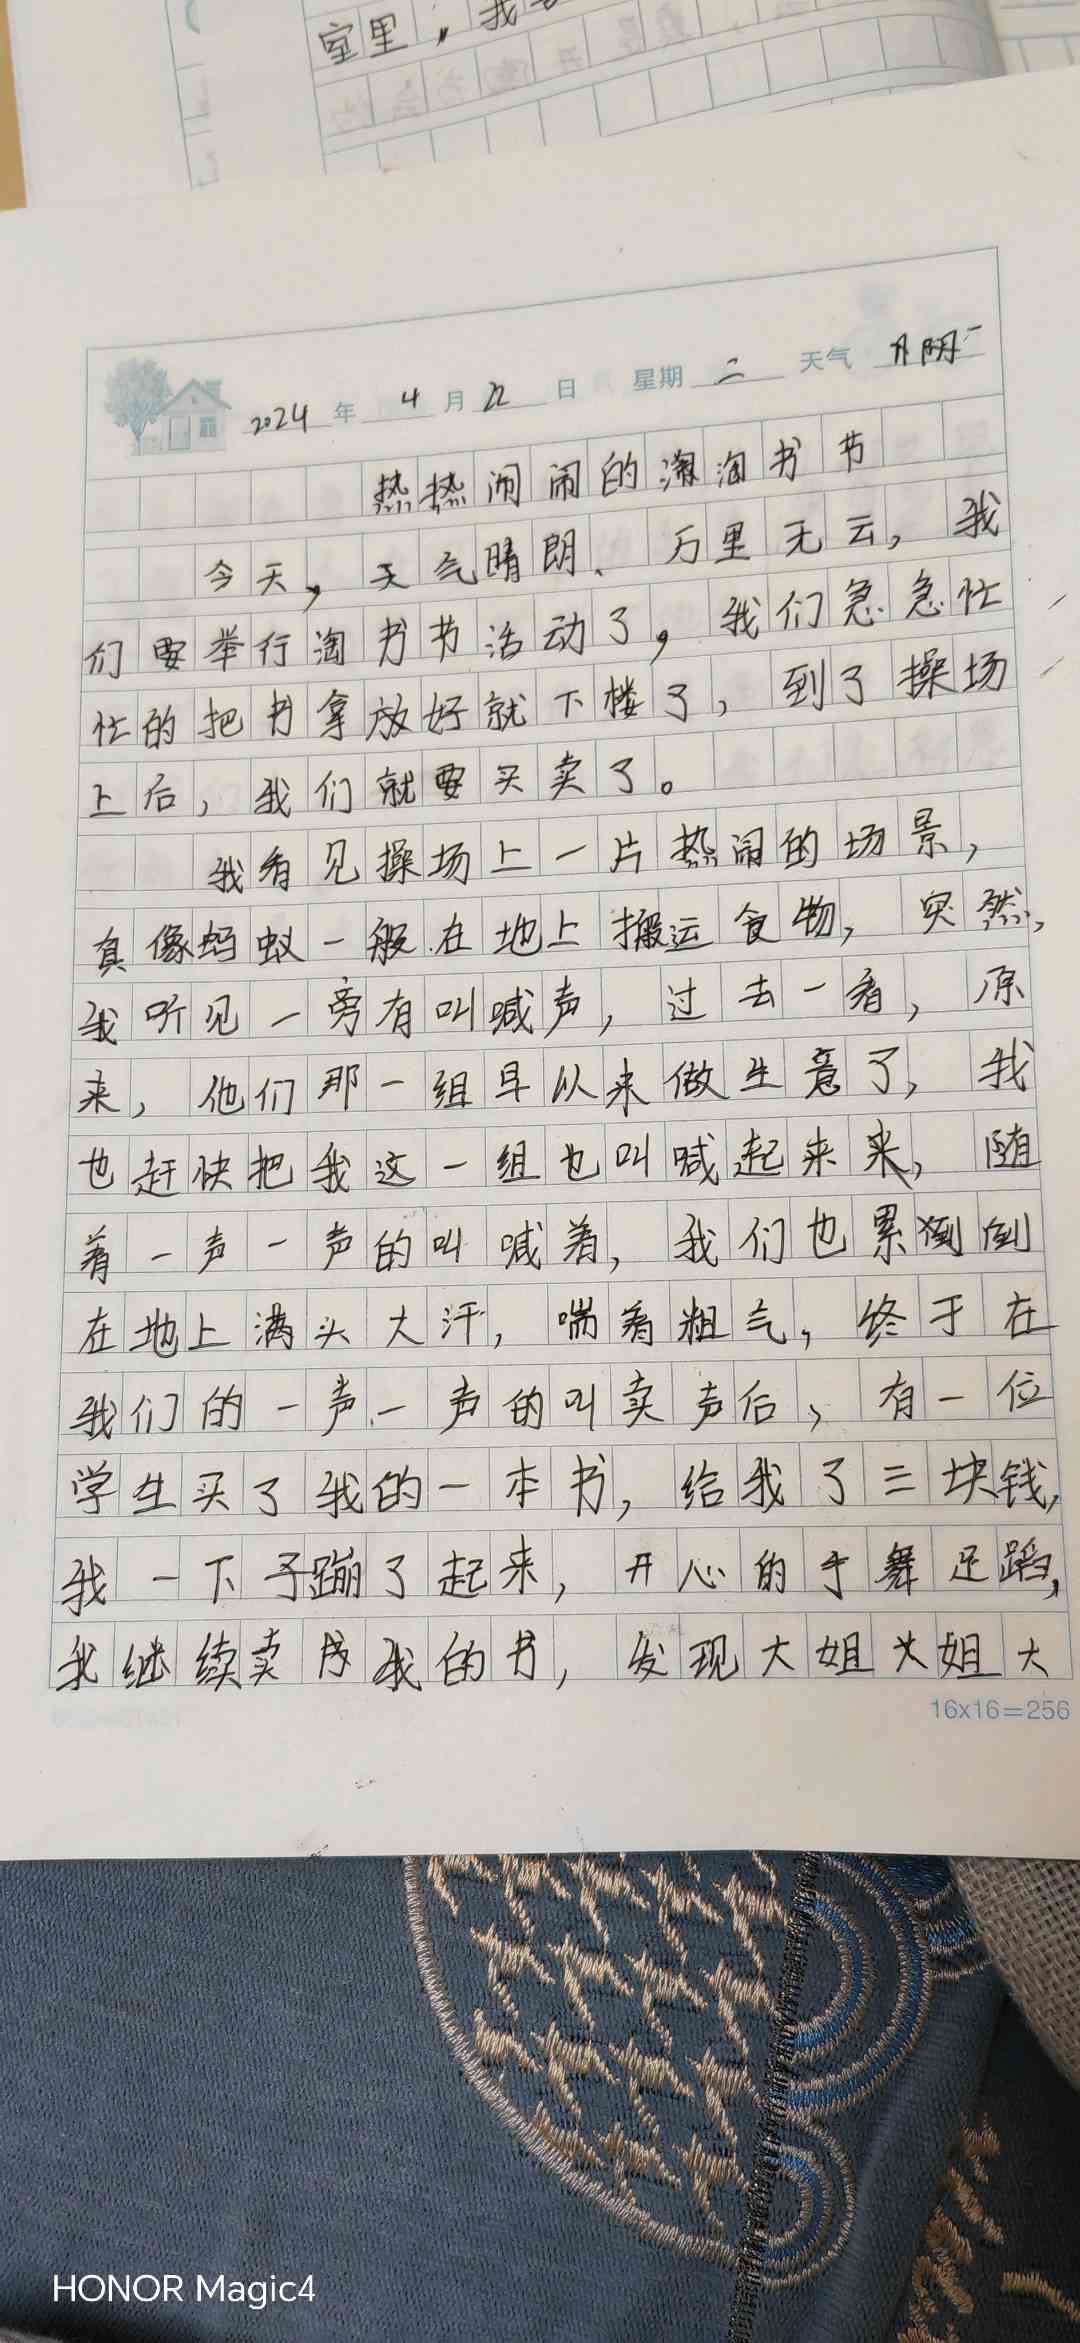 室里，我
2024年4月22日 星期二 天气 阴
热热闹闹的淘淘书节
今天，天气晴朗、万里无云，我
们要举行淘书节活动了，我们急急忙
忙的把书拿放好就下楼了，到了操场
上后，我们就要买卖了。
我看见操场上一片热闹的场景，
真像蚂蚁一般在地上搬运食物，突然，
我听见一旁有叫喊声，过去一看，原
来，他们那一组早以来做生意了，我
也赶快把我这一组也叫喊起来来，随
着一声一声的叫喊着，我们也累倒倒
在地上满头大汗，喘着粗气，终于在
我们的一声一声的叫卖声后，有一位
学生买了我的一本书，给我了三块钱，
我一下子蹦了起来，开心的手舞足蹈，
我继续卖我的书，发现大姐大姐大
16x16=256
HONOR Magic4